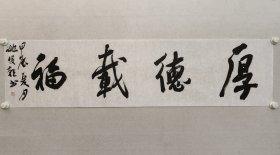 厚德載福
甲辰夏月